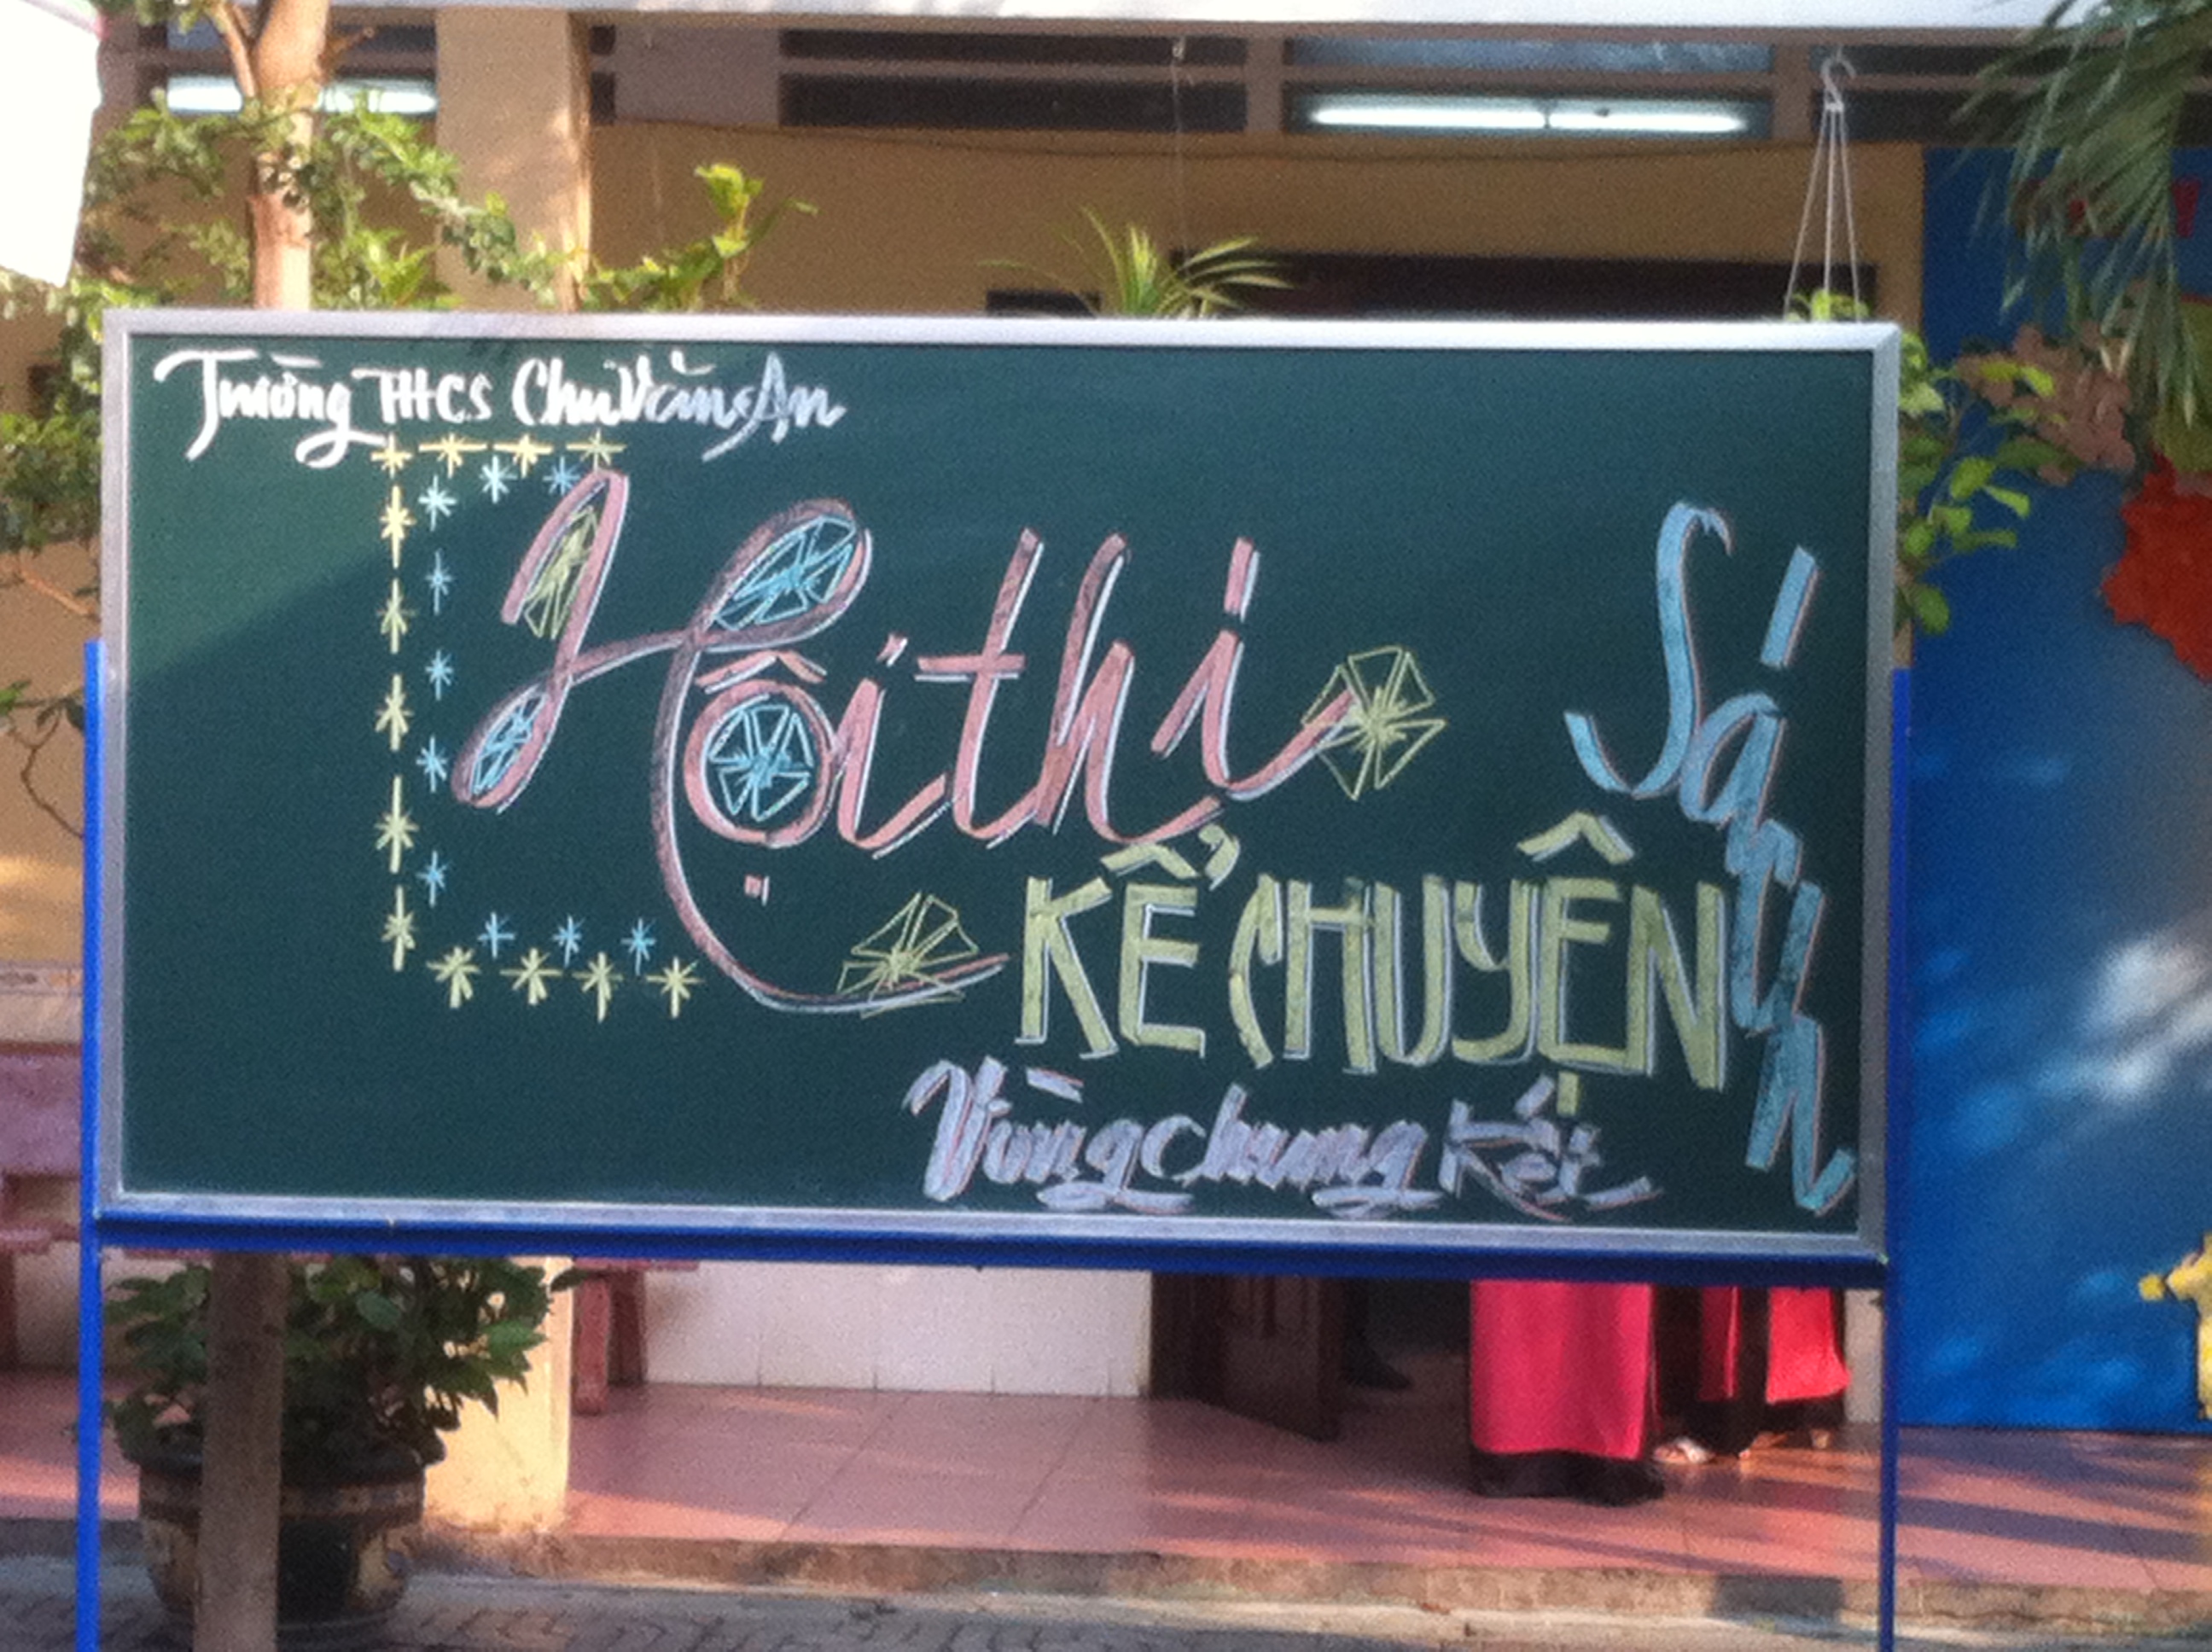 Trường THCS Chu Văn An
Hội thi
KỂ CHUYỆN
Sách
Vòng chung kết